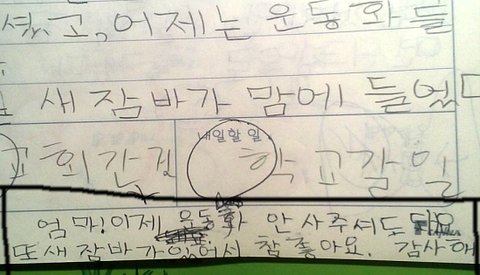 셨고, 어제는 운동화를
새 잠바가 맘에 들었다
회간 것
내일할 일
학교갈 일
엄마! 이제 운동화 안 사주셔도 되요
또 새 잠바가 있어서 참 좋아요. 감사해